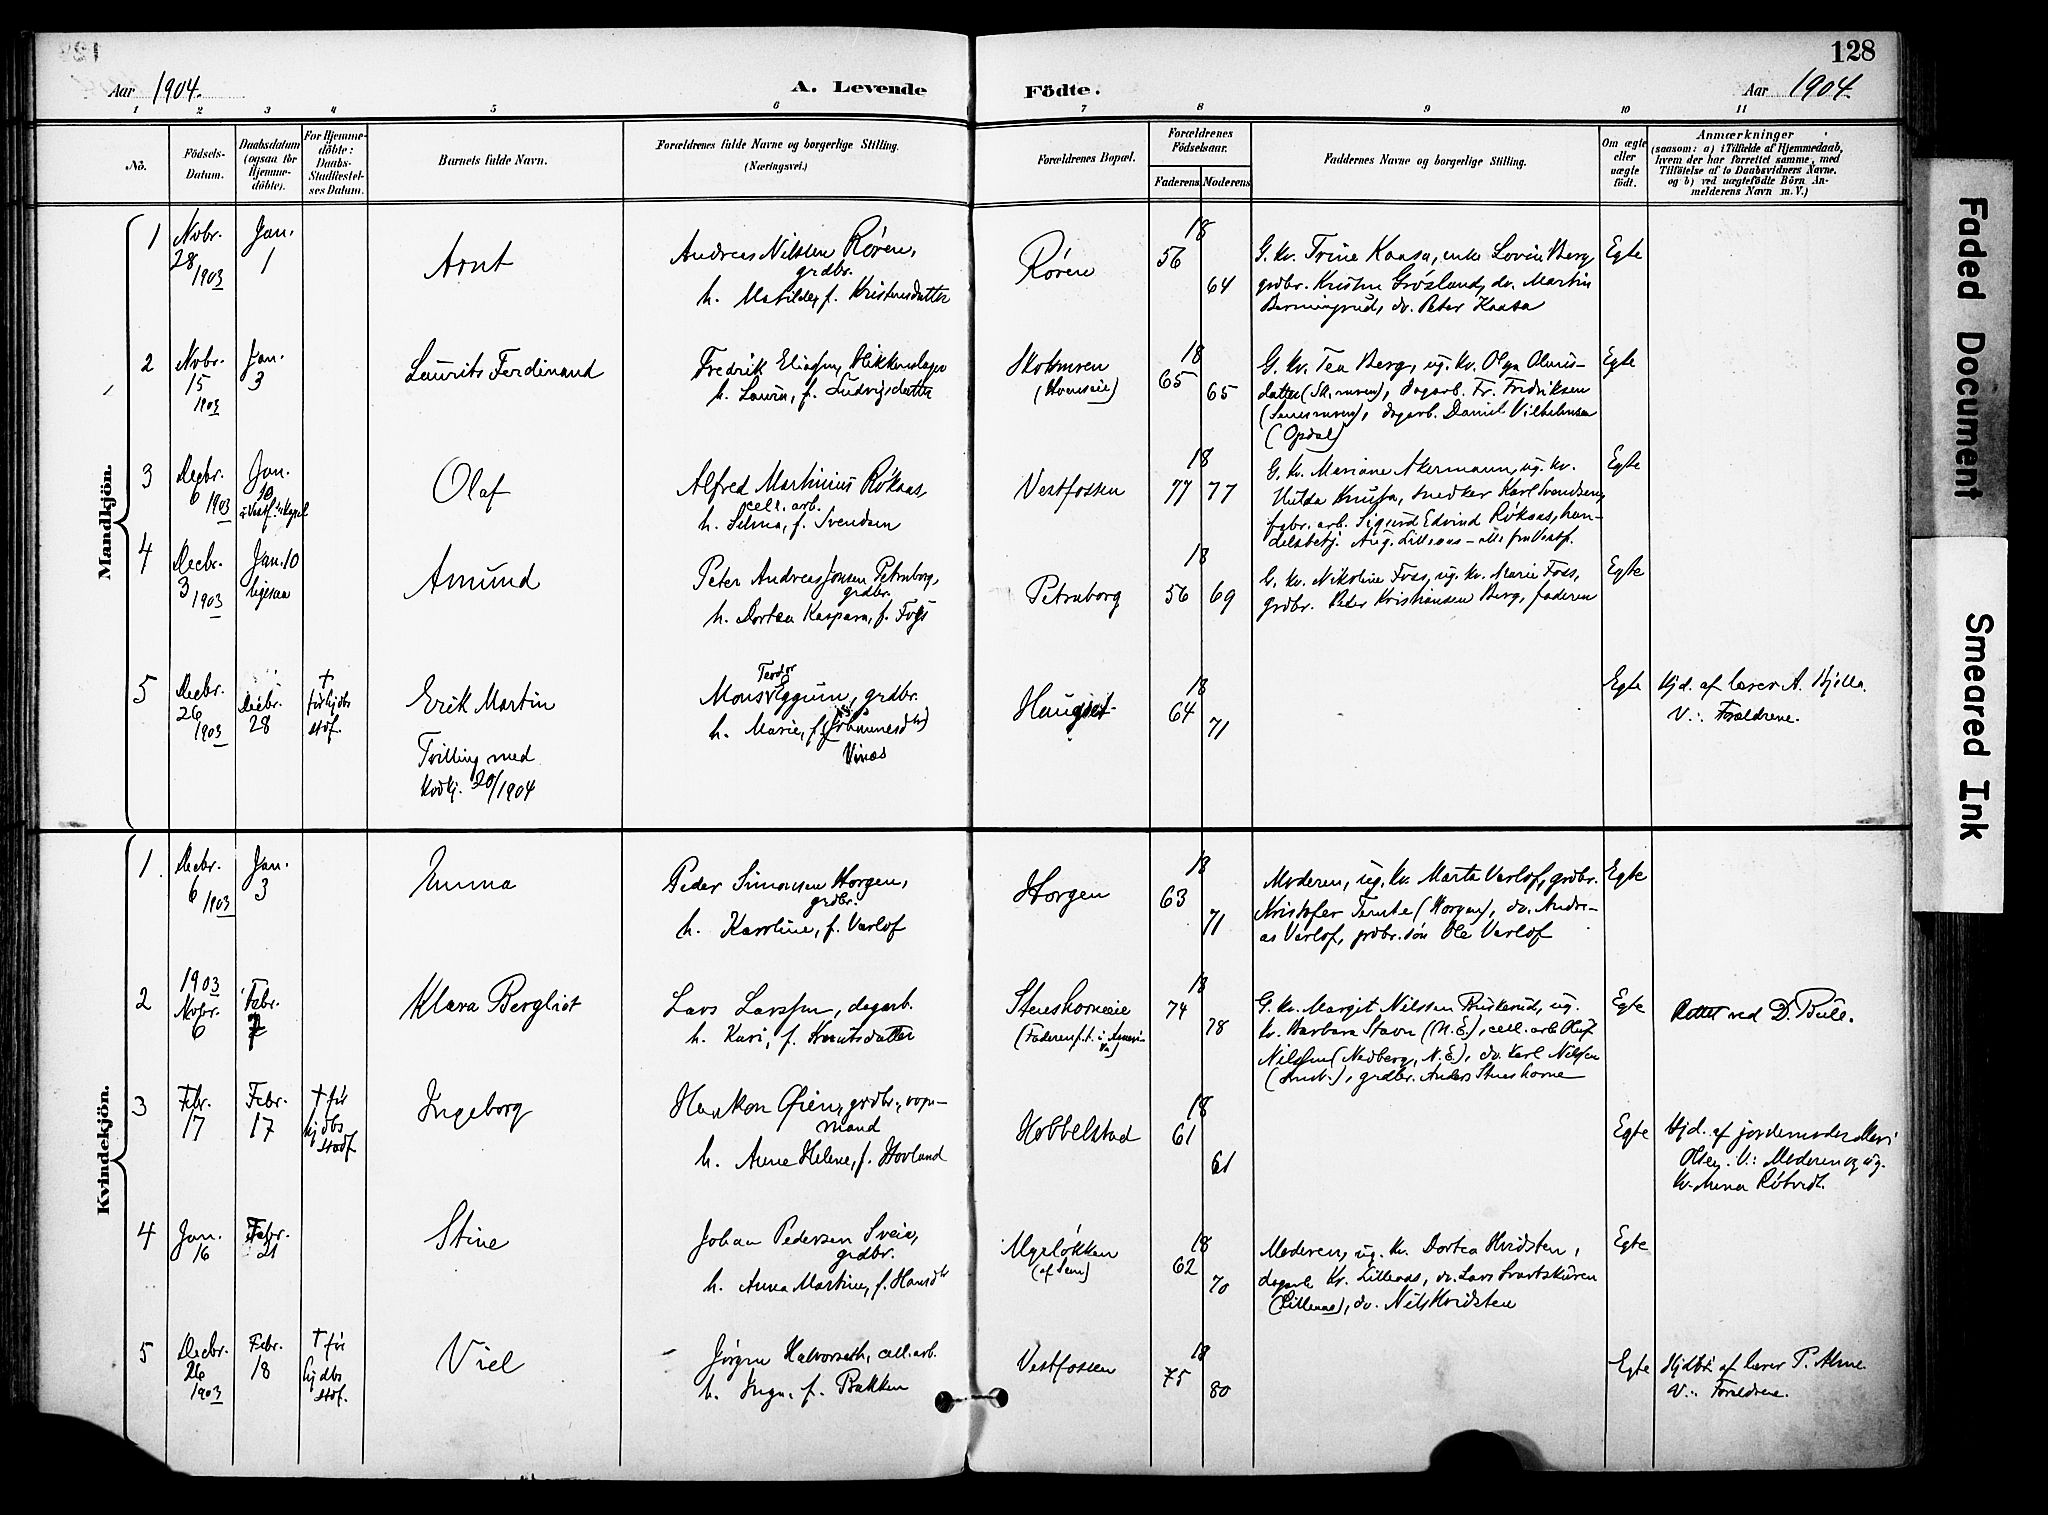 128
Aar 1904.
A. Levende
Födte.
Aar 1904.
1 2 3 4 5 6 7 8 9 10 11
No.
Födsels-
Datum.
Daabsdatum
(ogsaa for
Hjemme-
döbte).
For Hjemme-
döbte:
Daabs-
Stadfæstel-
ses Datum.
Barnets fulde Navn.
Forældrenes fulde Navne og borgerlige Stilling.
(Næringsvei.)
Forældrenes Bopæl.
Forældrenes
Födselsaar.
Faderens Moderens
Faddernes Navne og borgerlige Stilling.
Om ægte
eller
uægte
födt.
Anmærkninger
(saasom: a) i Tilfælde af Hjemmedaab,
hvem der har forrettet samme, med
Tilföielse af to Daabsvidners Navne,
og b) ved uægtefödte Börn An-
melderens Navn m. V.)
Mandkjön.
1
Novbr.
28
1903
Jan.
1
Arnt
Andreas Nilssen Røren,
grdbr.
h. Matilde, f. Kristensdatter
Røren
18
56
64
G. kv. Trine Kaasa, enke Lovise Berg,
grdbr. Kristen Grøsland, dr. Martin
dr. Peter Kaasa
Egte
2
Novbr.
15
1903
Jan.
3
Laurits Ferdinand
Fredrik Eliasen,
h. Laura, f. Ludvigsdatter
18
65
65
G. kv. Tea Berg, ug. kv. Olga
datter dagarb. Fr. Fridriksen
dagarb. Daniel Vilhelmsen
(Opdal)
Egte
3
Decbr.
6 1903
Jan.
10
i Vestf. Kapel
Olaf
Alfred Martinius Røkaas,
cell. arb.
h. Selma, f. Svendsen
Vestfossen
18
77 77
G. kv. Mariane Akermann, ug. kv.
Hulda Knufa, snedker Karl Svendsen,
fabr. arb. Sigurd Edvind Røkaas, han-
delsbetj. Aug. Lilleaas – alle fra Vestf.
Egte
4
Decbr.
3 1903
Jan. 10
ligesaa
Amund
Peter Andreas Jonsen Petraborg,
grdbr.
h. Dortea Kaspara, f. Foss
Petraborg
18
56 69
G. kv. Nikoline Foss, ug. kv. Marie Foss,
grdbr. Peder Kristiansen Berg, faderen
Egte
5
Decbr.
26
1903
Decbr.
28
† før hjdbs
stdf.
Erik Martin
Tvilling med
kvdkj. 20/1904
Teodor
Mons Eggum, grdbr.
h. Marie, f. (Johannesdtr)
Vinæs
18
64
71
Egte
Hjd. af lærer A. Hjella.
V.: Forældrene.
Kvindekjön.
1
Decbr.
6 1903
Jan.
3
Emma
Peder Simonsen Horgen,
grdbr.
h. Karoline, f. Varlof
Horgen
18
63
71
Moderen, ug. kv. Marta Varlof, grdbr.
Kristofer Temte (Horgen), dr. Andre-
as Varlof, grdbr. søn Ole Varlof
Egte
2
1903
Novbr.
6
Febr.
7
Klara Bergliot
Lars Larssen, dagarb.
h. Kari, f. Knutsdatter
Stenshorneie
(Faderen p. t. i Ameri-
ka)
18
74
78
G. kv. Margit Nilssen Buskerud, ug.
kv. Barbara Stavn (N. E.), cell. arb. Oluf
Nilssen (Nedberg, N. E.), dr. Karl Nilssen
grdbr. Anders Stenshorne
Egte
Rettet ved D. Bull.
3
Febr.
17
Febr.
17
† før
hjdbs
stadf.
Ingeborg
Haakon Øien, grdbr., vogn-
mand
h. Anne Helene, f. Hovland
Hobbelstad
18
61
61
Egte
Hjd. af jordemoder Mari
Olsen. V.: Moderen og ug.
kv. Anna Røtvedt.
4
Jan.
16
Febr.
21
Stine
Johan Pedersen Sveia,
grdbr.
h. Anna Martine, f. Hansdtr
Myrløkken
(af Sem)
18
62
70
Moderen, ug. kv. Dortea Hvidsten,
dagarb. Kr. Lilleaas, dr. Lars Svartskuren
(Lilleaas), dr. Nils Hvidsten
Egte
5
Decbr.
26
1903
Febr.
18
† før
hjdbs
stdf.
Viel
Jørgen Halvorseth, cell. arb.
h. Inga, f. Bakken
Vestfossen
18
75
80
Egte
Hjdbt af lærer P. Alme.
V.: Forældrene.
Faded Document
Smeared Ink